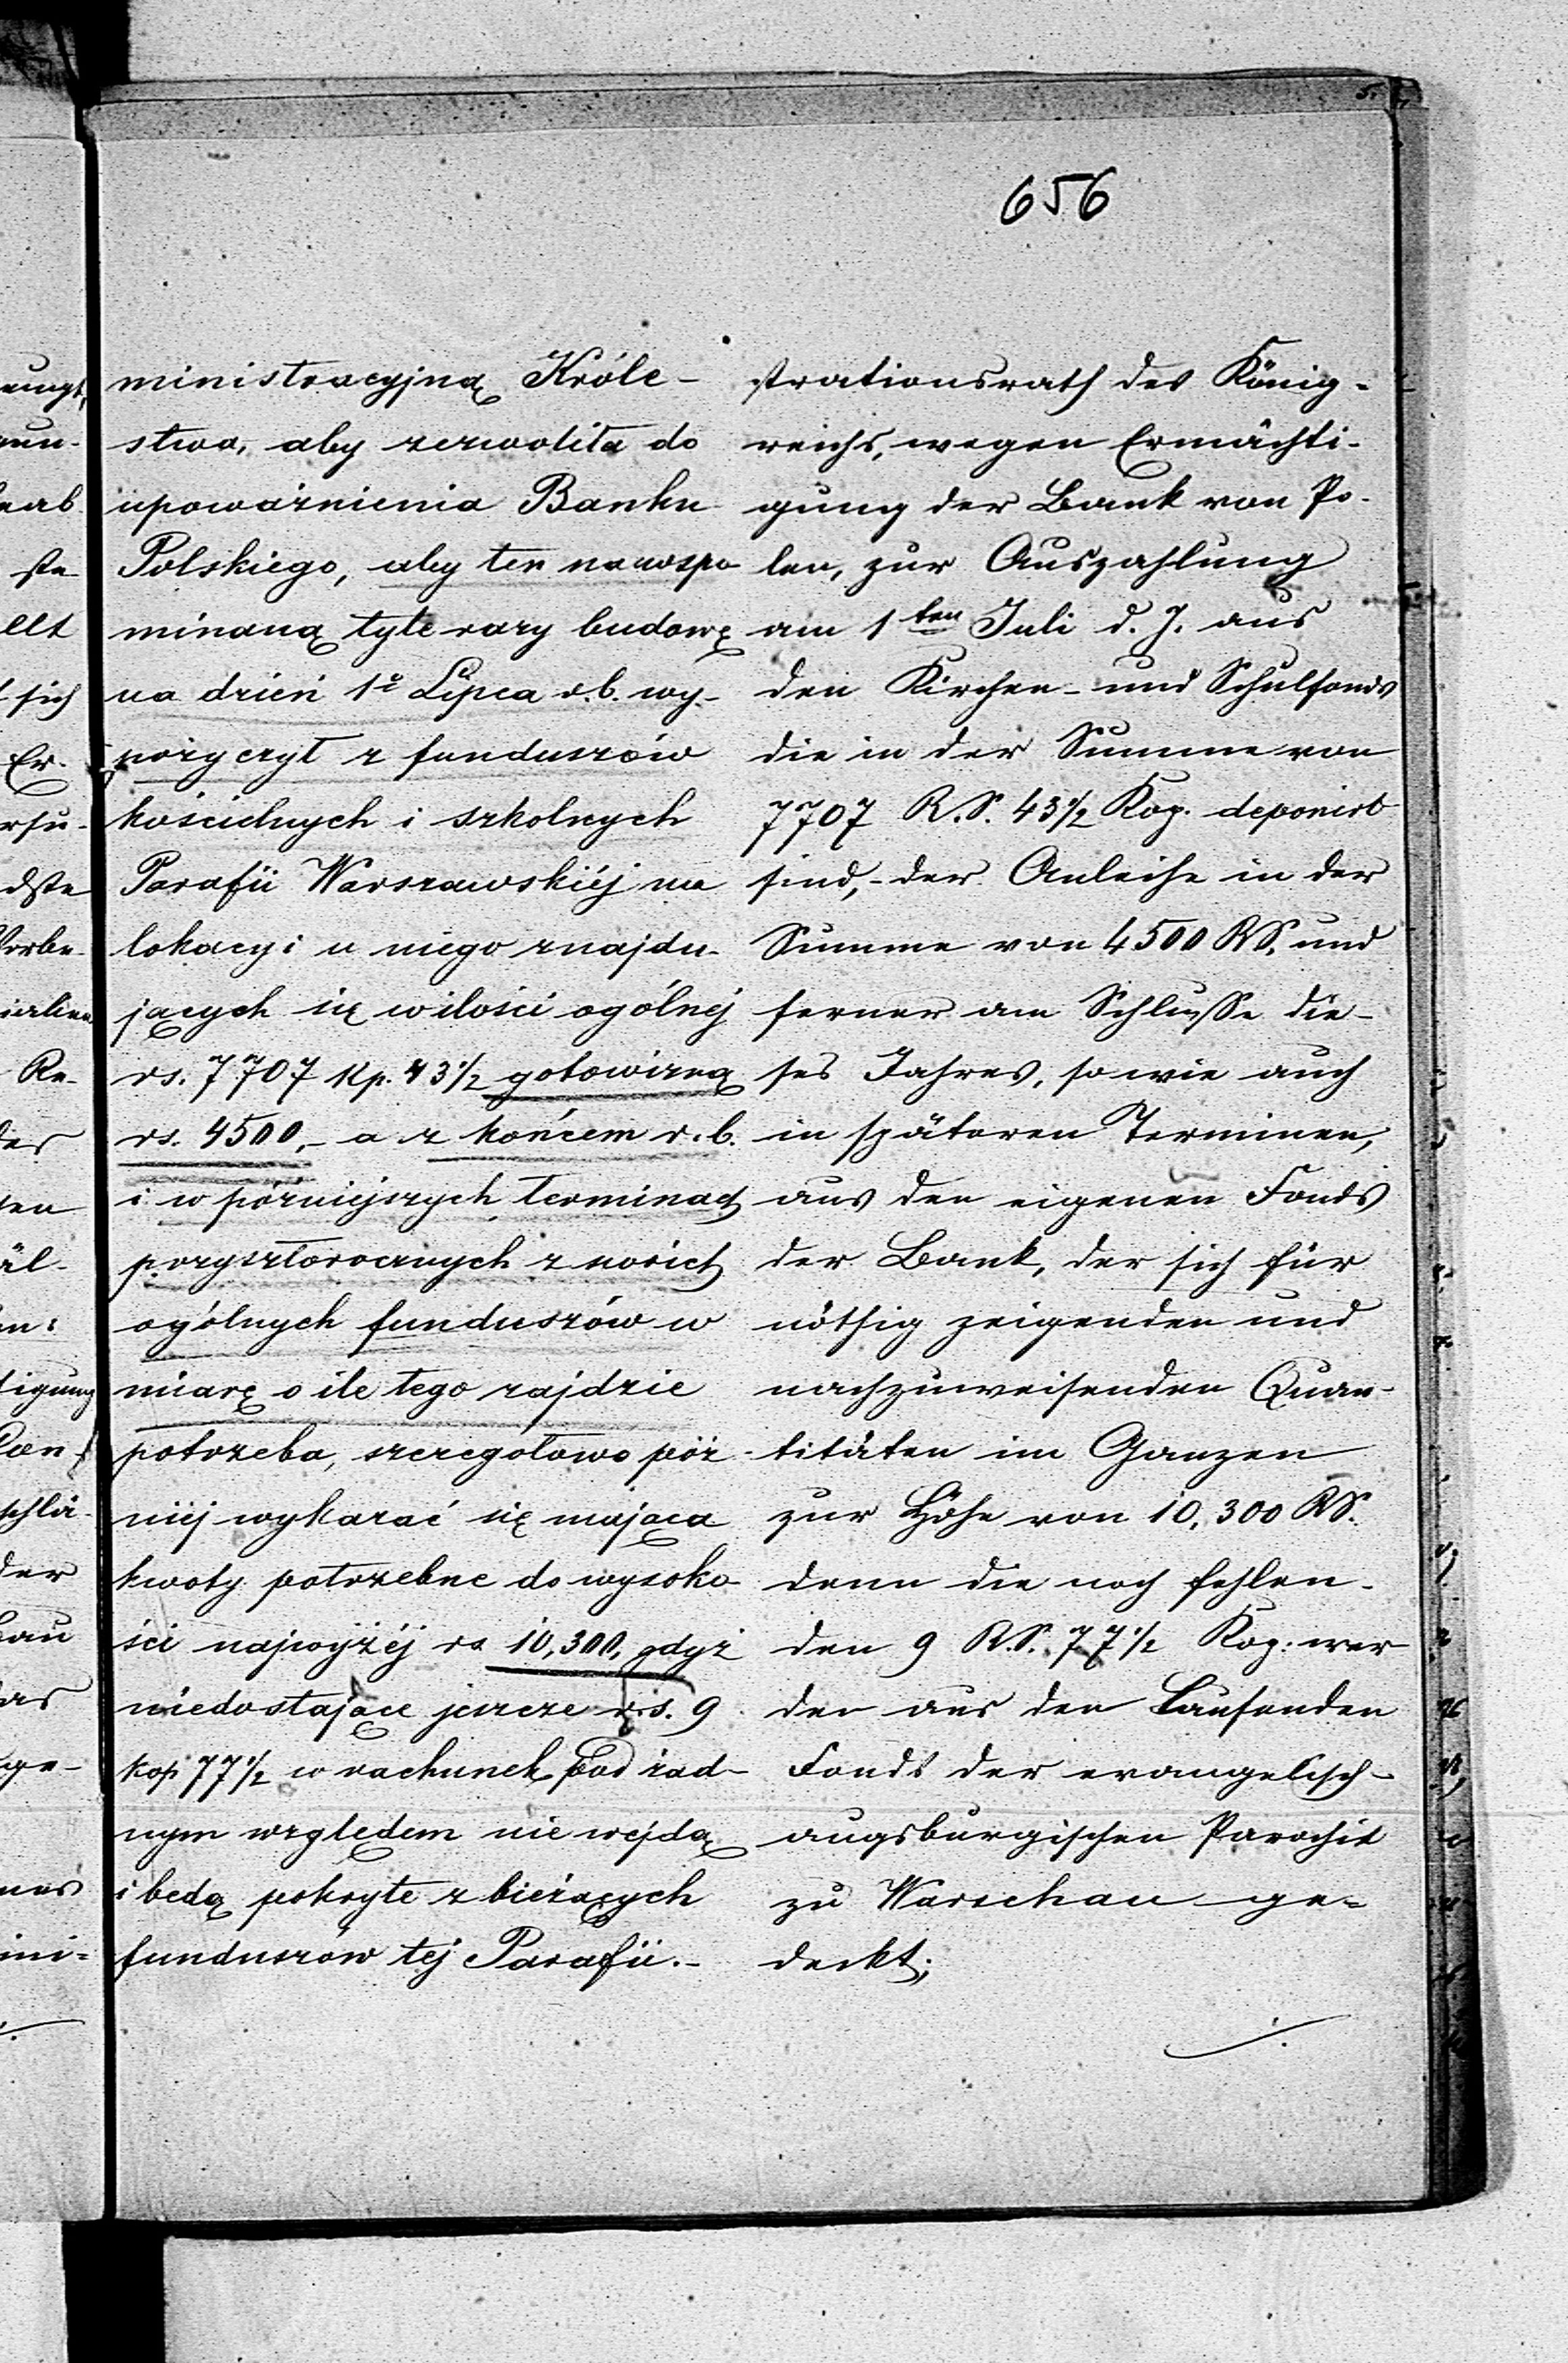 656
ministracyjną Króle-
stwa, aby zezwoliła do
upoważnienia Banku
Polskiego, aby ten na wspo
minaną tyle razy budowę
na dzień 1º Lipca r.b. wy-
pożyczył z funduszów
kościelnych i szkolnych
Parafii Warszawskiéj na
lokacyi u niego znajdu-
jących się w ilości ogólnéj
rs. 7707 kp. 43½ gotowizną
rs. 4500,- a z końcem r.b.
i w póżniejszych terminach
przyszłorocznych z swoich
ogólnych funduszów w
miarę o ile tego zajdzie
potrzeba, szczegółowo póż-
niéj wykazać się mająca
kwoty potrzebne do wysoko-
ści najwyżéj rs 10,300, gdyż
niedostające jeszcze rs. 9
kop 77½ w rachunek pod żad-
nym względem nie wejdą
i bedą pokryte z bieżących
funduszów téj Parafii.-
strationsrath des König-
reichs, wegen Ermächti-
gung der Bank von Po-
len, zur Auszahlung
am 1ten Juli d. J. aus
den Kirchen- und Schulfonds
die in der Summe von
7707 R.S. 43½ Kop. deponirt
sind, - der Anleihe in der
Summe von 4500 RS. und
ferner am Schlusse die-
ses Jahres, so wie auch
in späteren Terminen,
aus den eigenen Fonds
der Bank, der sich für
nöthig zeigenden und
nachzuweisenden Quan-
titäten im Ganzen
zur Höhe von 10,300 RS.
denn die noch fehlen-
den 9 R.S. 77½ Kop: wer
den aus den Laufenden
Fonds der evangelisch-
augsburgischen Parochie
zu Warschau ge-
deckt;
./.